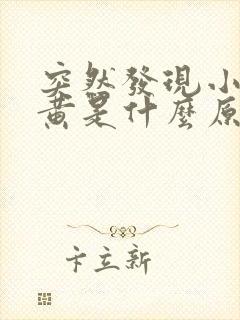 突然發現小
黃是什麼原
卡立新